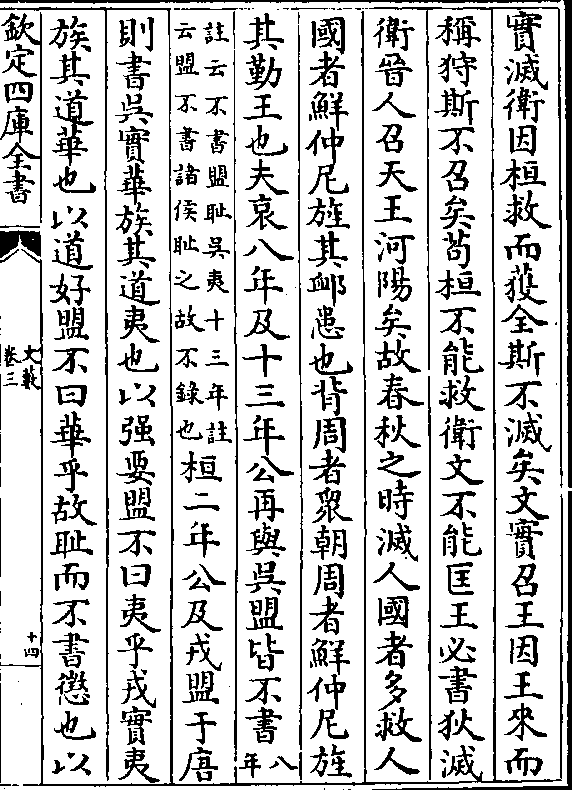 實滅衛因桓救而獲全斯不滅矣文實召王因王來而
稱狩斯不召矣苟桓不能救衛文不能匡王必書狄滅
衛晉人召天王河陽矣故春秋之時滅人國者多救人
國者鮮仲尼旌其䘏患也背周者衆朝周者鮮仲尼旌
其勤王也夫哀八年及十三年公再與吳盟皆不書八年
註云不書盟耻吳夷十三年註
云盟不書諸侯耻之故不錄也桓二年公及戎盟于唐
則書吳實華族其道夷也以强要盟不曰夷乎戎實夷
族其道華也以道好盟不曰華乎故耻而不書懲也以
欽定四庫全書
文藪
卷三
十四